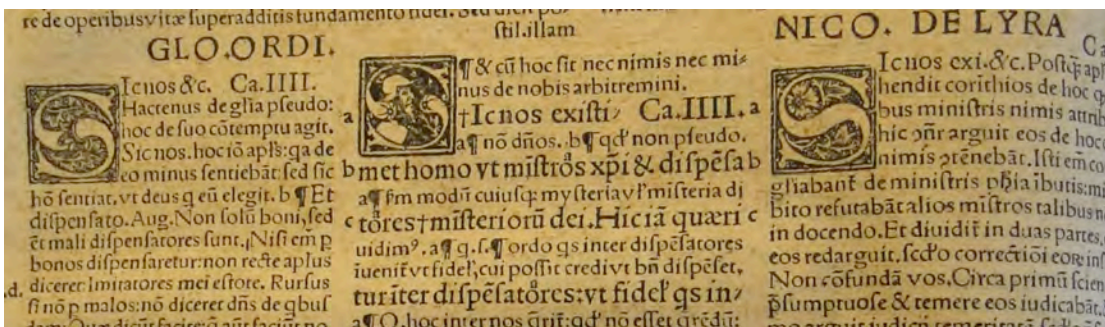 re de operibus vitæ superadditis fundamento fidei. Sed dicit
GLO.ORDI.
Icnos &c. Ca.IIII.
Hactenus de gl̃ia pseudo:
hoc de suo cõtemptu agit.
Sic nos. hoc iõ apl̃s: qa de
eo minus sentiebãt: sed sic
hõ sentiat, vt deus q eũ elegit. b ¶ Et
dispensato. Aug. Non solũ boni, sed
ẽt mali dispensatores sunt. Nisi em̃ p
bonos dispensaretur: non recte aplus
diceret: Imitatores mei estote. Rursus
.d.
si nõ p malos: nõ diceret dñs de qbus
stil.illam
¶ & cũ hoc sit nec nimis nec mi⸗
nus de nobis arbitremini.
a †Icnos existi⸗ Ca.IIII. a
a¶ nõ dños. b¶ qd' non pseudo.
b met homo vt mĩstros xp̃i & dispẽsa b
a¶ s̃m modũ cuiusq; mysteria vl' misteria di
c tores † mĩsteriorũ dei. Hic iã quæri c
uidimꝰ. a¶ q.s.¶ ordo qs inter dispẽsatores
iuenit̃ vt fidel', cui possit credi vt bñ dispẽset,
tur iter dispẽsatores: vt fidel' qs in⸗
a¶ O. hoc inter nos q̃rit̃: qd' nõ esset q̃rẽdũ:
NICO. DE LYRA
Ca
Icnos exi. &c. Postq̃ꝫ
hendit corĩthios de hoc
bus ministris nimis
hic ↄñr arguit eos de hoc
nimis ↄtẽnebãt. Isti em̃
gl̃iabant̃ de ministris
bito refutabãt alios mĩstros talibus
in docendo. Et diuidit̃ in duas partes,
eos redarguit. scd'o correctiõi
Non cõfundã vos. Circa primũ
p̃sumptuose & temere eos iudicabãt.